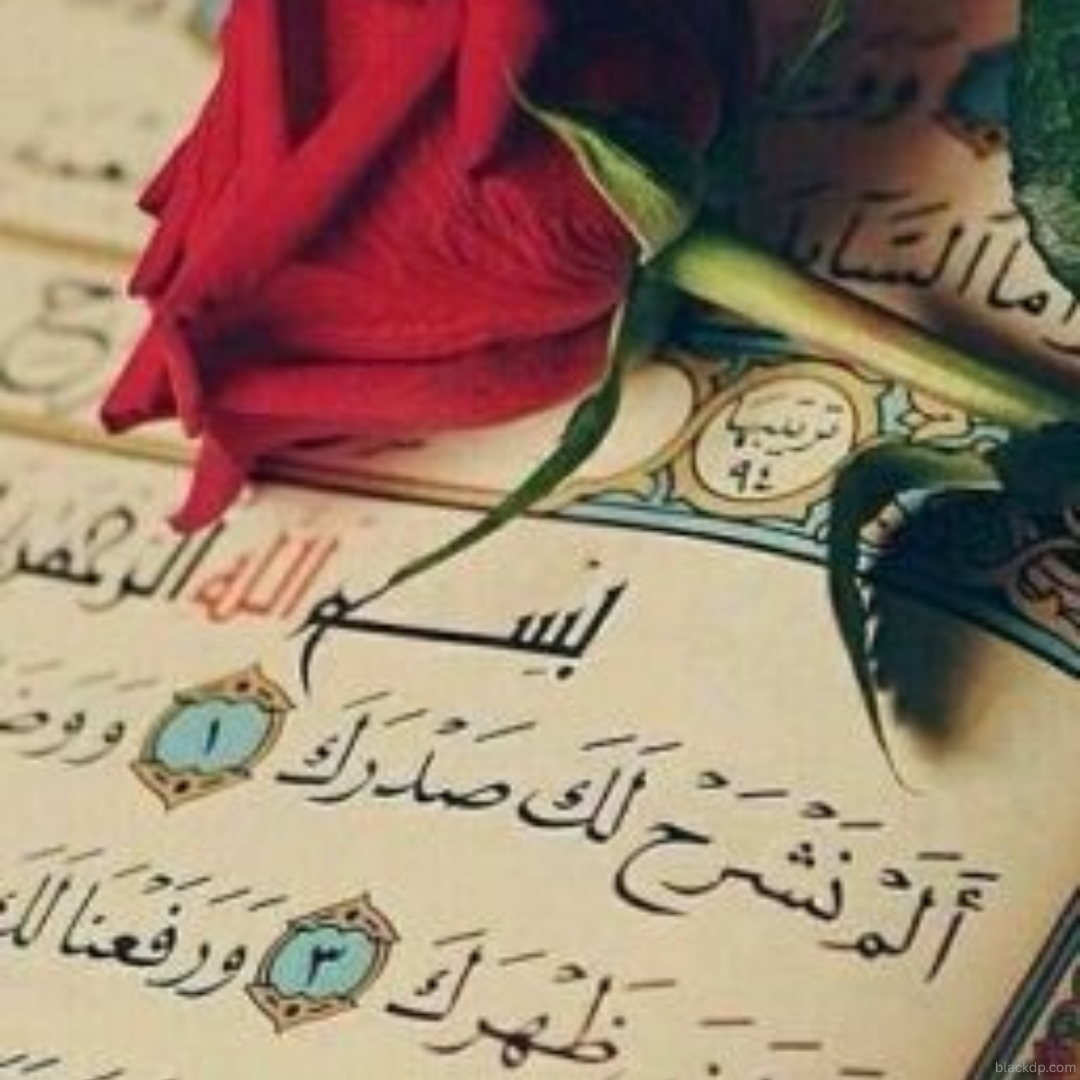 ما السَّائِلَ
ترتيبها
٩٤
بِسْمِ اللَّهِ الرَّحْمَٰنِ
أَلَمْ نَشْرَحْ لَكَ صَدْرَكَ ١
ظَهْرَكَ ٣ وَرَفَعْنَا لَكَ
blackdp.com